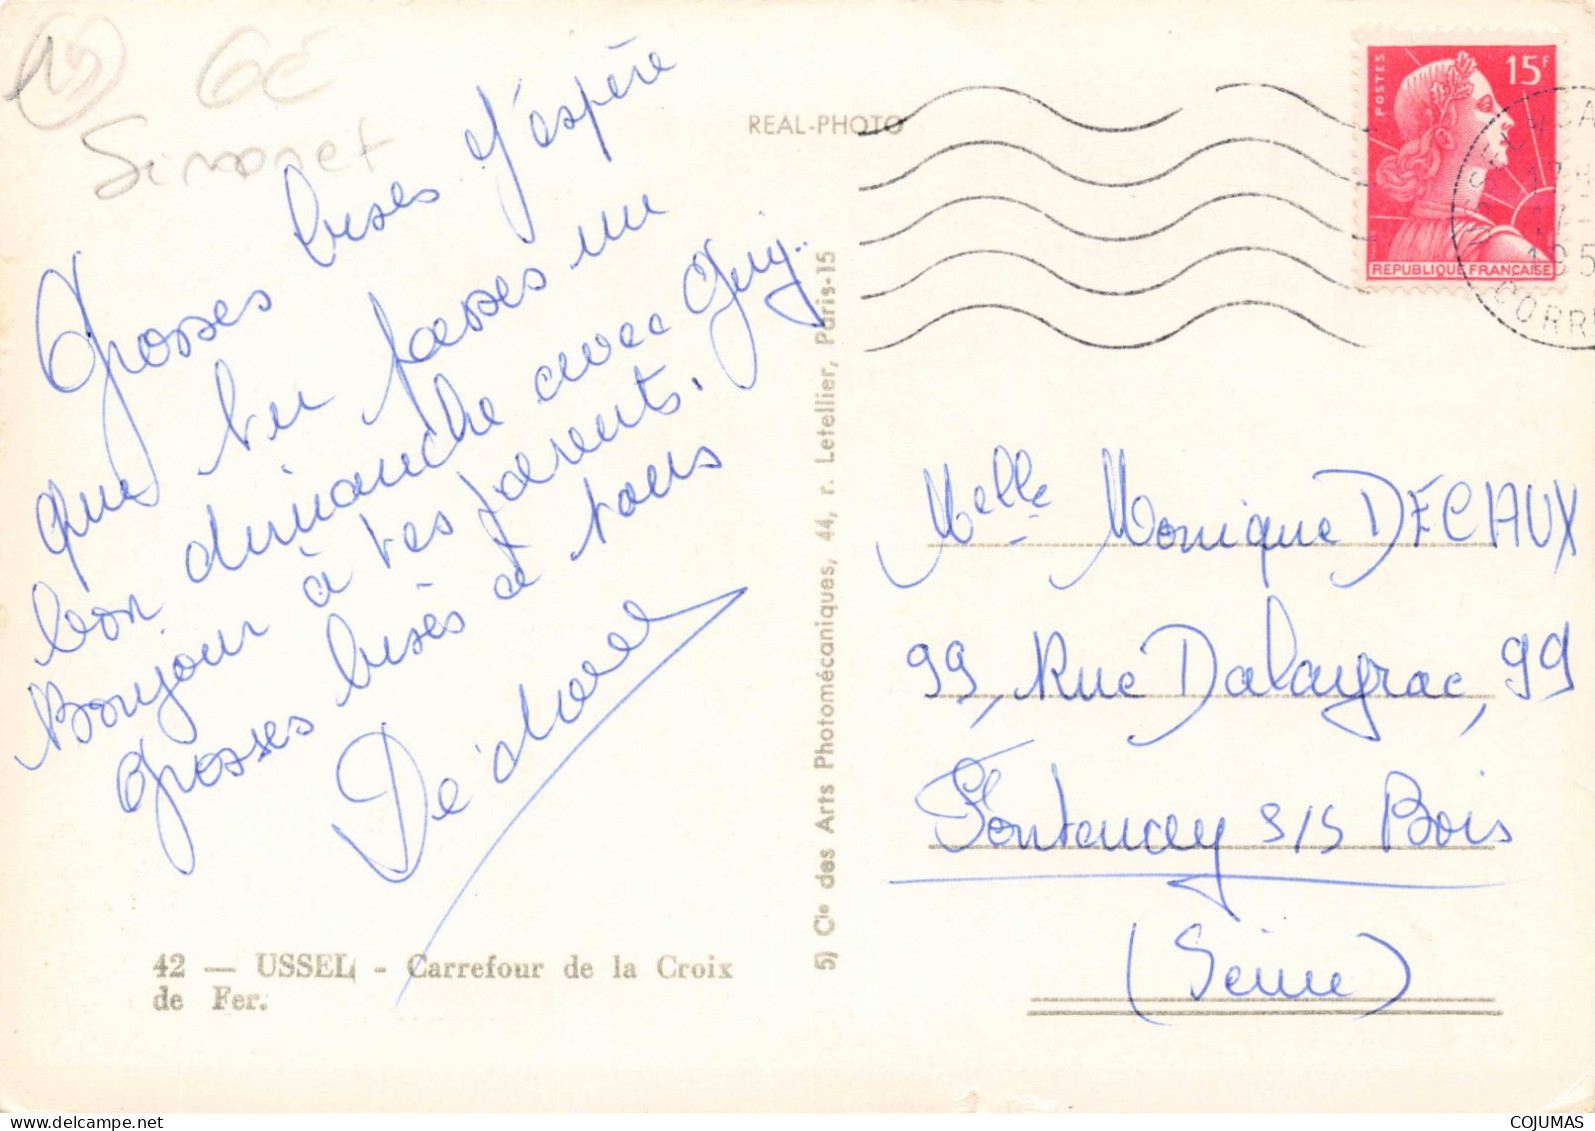 6€
Simonet
REAL-PHOTO
POSTES
15F
REPUBLIQUE FRANÇAISE
USSEL
CORR
Grosses bises j'espère
que tu passes un
bon dimanche avec Guy.
Bonjour à tes parents.
Grosses bises à tous
5) Cie des Arts Photomécaniques, 44, r. Letellier, Paris-15
Melle Monique DECAUX
99, Rue Dalayrac, 99
Fontenay s/s Bois
(Seine)
42 — USSEL - Carrefour de la Croix
de Fer.
COJUMAS